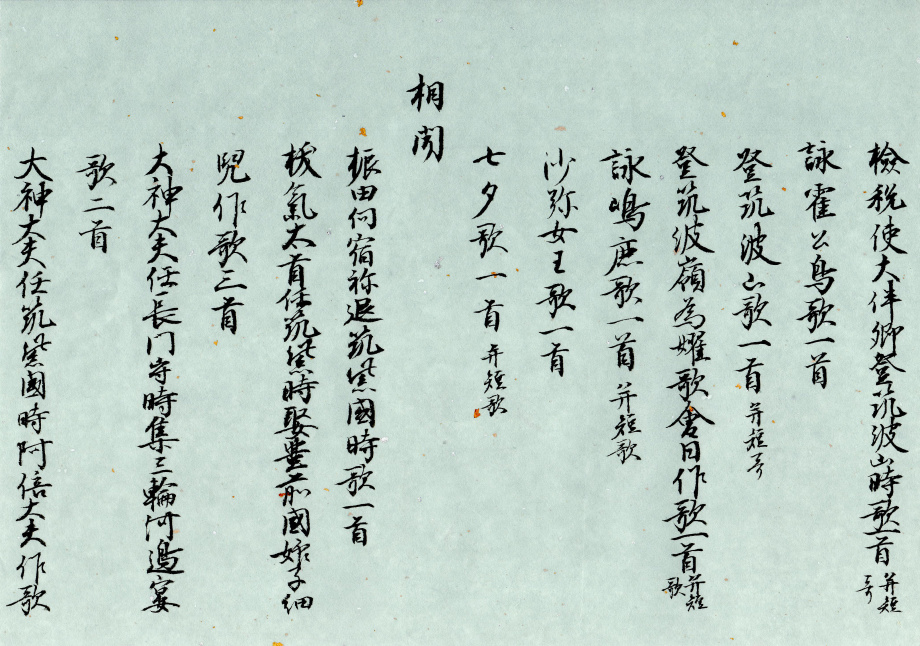 檢税使大伴卿登筑波山時歌一首 并短哥
詠霍公鳥歌一首
登筑波山歌一首 并短哥
登筑波嶺為嬥歌會日作歌一首 并短歌
詠鳴鹿歌一首 并短歌
沙弥女王歌一首
七夕歌一首 并短歌
相聞
振田向宿祢退筑紫國時歌一首
抜氣大首任筑紫時娶豊前國娘子紐
兒作歌三首
大神大夫任長門守時集三輪河邊宴
歌二首
大神大夫任筑紫國時阿倍大夫作歌